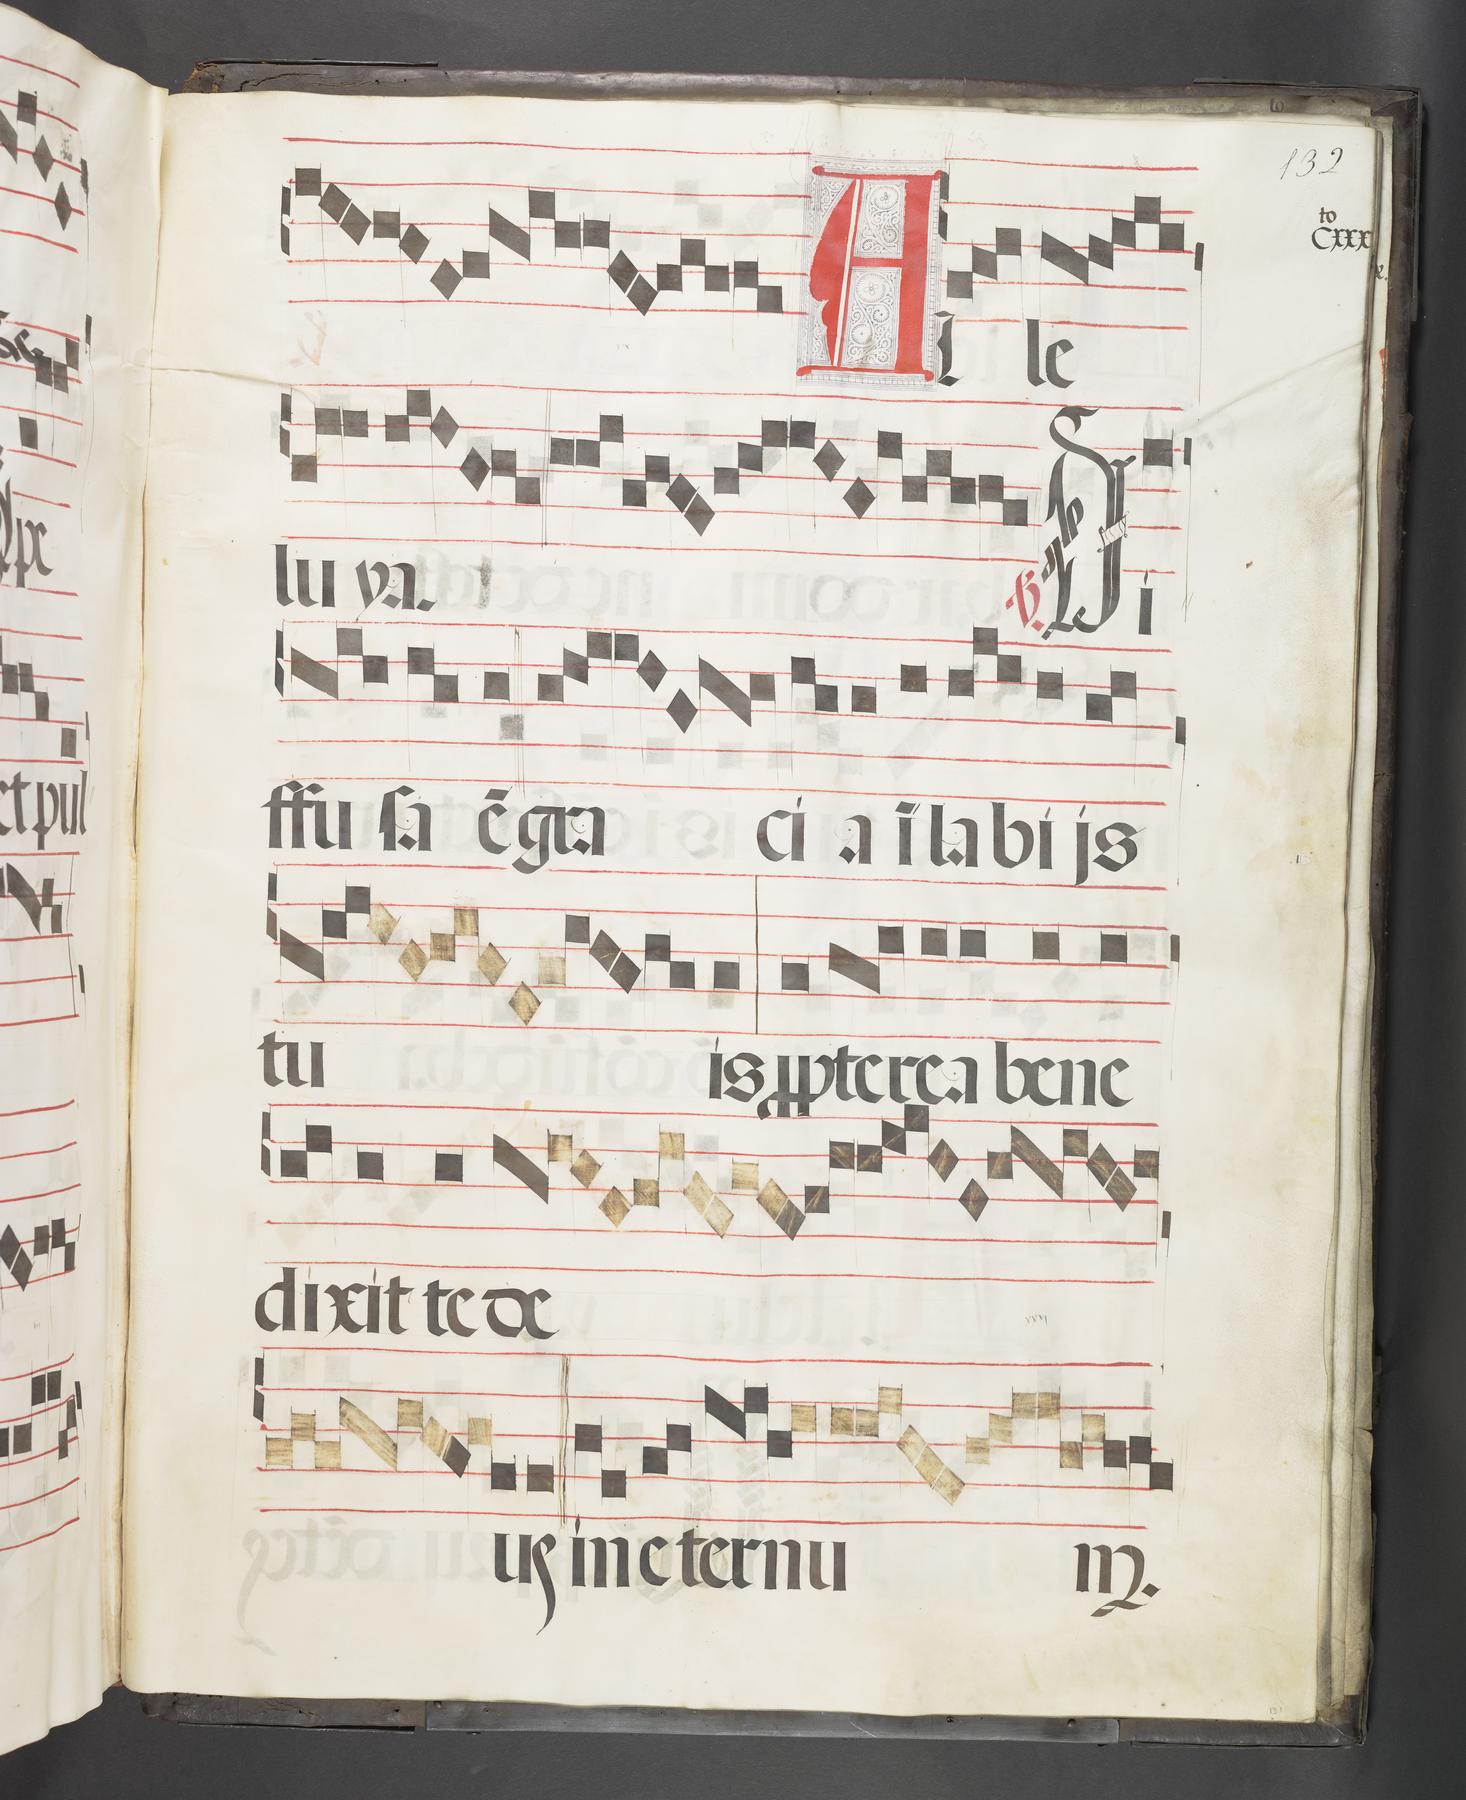 132
to
Cxxx
Al le
lu ya. ℣. Di
ffu sa ē gra ci a ī la bi js
tu is ꝓpterea bene
dixit te de
us in eternu m.